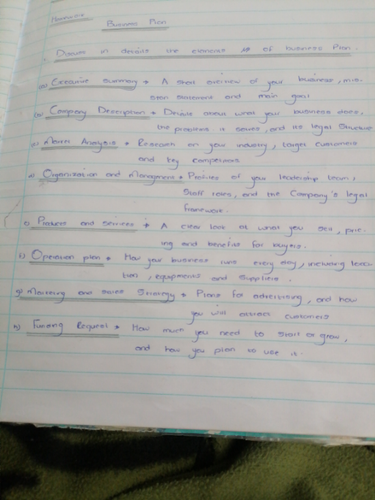 Business Plan
Discuss in details the elements of business Plan.
a) Executive summary * A short overview of your business, mis-
sion statement and main goal
b) Company Description * Details about what your business does,
the problems it solves, and its legal structure
c) Market Analysis * Research on your industry, target customers
and key competitors
d) Organization and Management * Profiles of your leadership team,
staff roles, and the Company's legal
framework.
Products and services * A clear look at what you sell, pric-
ing and benefits for buyers.
Operation plan * How your business runs every day, including loca-
tion, equipments and suppliers.
g) Marketing and sales Strategy * Plans for advertising, and how
you will attract customers
h) Funding Request * How much you need to start or grow,
and how you plan to use it.